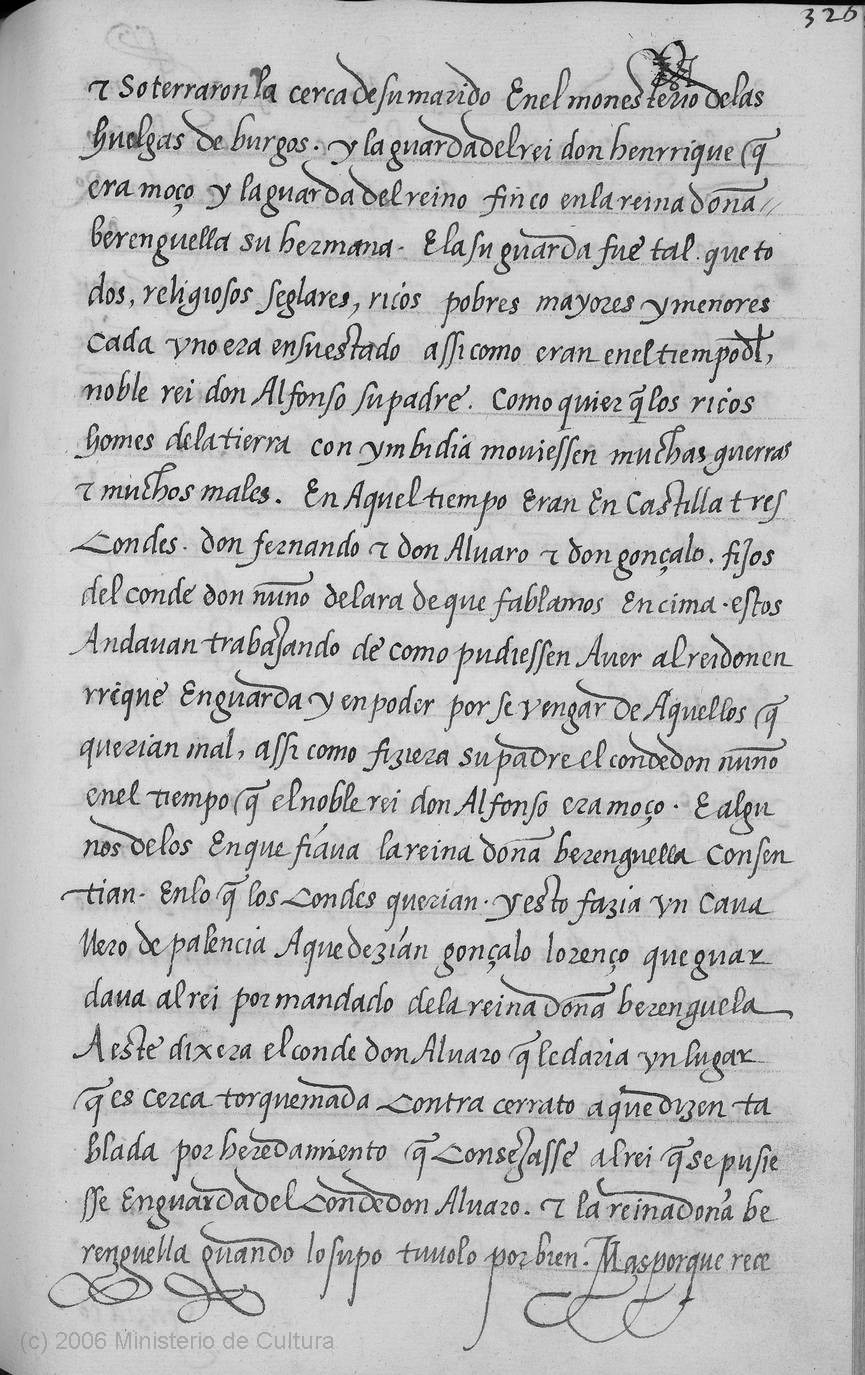 326
⁊ Soterraronla cerca de su marido Enel monesterio delas
huelgas de burgos. y la guarda del rei don henrrique q̃
era moço y la guarda del reino finco en la reina doña //
berenguella su hermana. E la su guarda fue tal. que to
dos, religiosos seglares, ricos pobres mayores y menores
Cada vno era en su estado assi como eran enel tiempo dl,
noble rei don Alfonso su padre. Como quier q̃ los ricos
homes de la tierra con ymbidia mouiessen muchas guerras
⁊ muchos males. En Aquel tiempo Eran En Castilla tres
Condes. don fernando ⁊ don Aluaro ⁊ don gonçalo. fijos
del conde don nuño de lara de que fablamos Encima. estos
Andauan trabajando de como pudiessen Auer al rei don en
rrique En guarda y en poder por se vengar de Aquellos q̃
querian mal, assi como fiziera su padre el conde don nuño
enel tiempo q̃ el noble rei don Alfonso era moço. E algu
nos de los En que fiaua la reina doña berenguella Consen
tian. En lo q̃ los Condes querian. y esto fazia vn Caua
llero de palencia A que dezian gonçalo lorenço que guar
daua al rei por mandado de la reina doña berenguela
A este dixera el conde don Aluaro q̃ le daria vn lugar
q̃ es cerca torquemada Contra cerrato a que dizen ta
blada por heredamiento q̃ Consejasse al rei q̃ se pusie
sse En guarda del Conde don Aluaro. ⁊ la reina doña be
renguella quando lo supo tuuolo por bien. Mas porque rece
(c) 2006 Ministerio de Cultura